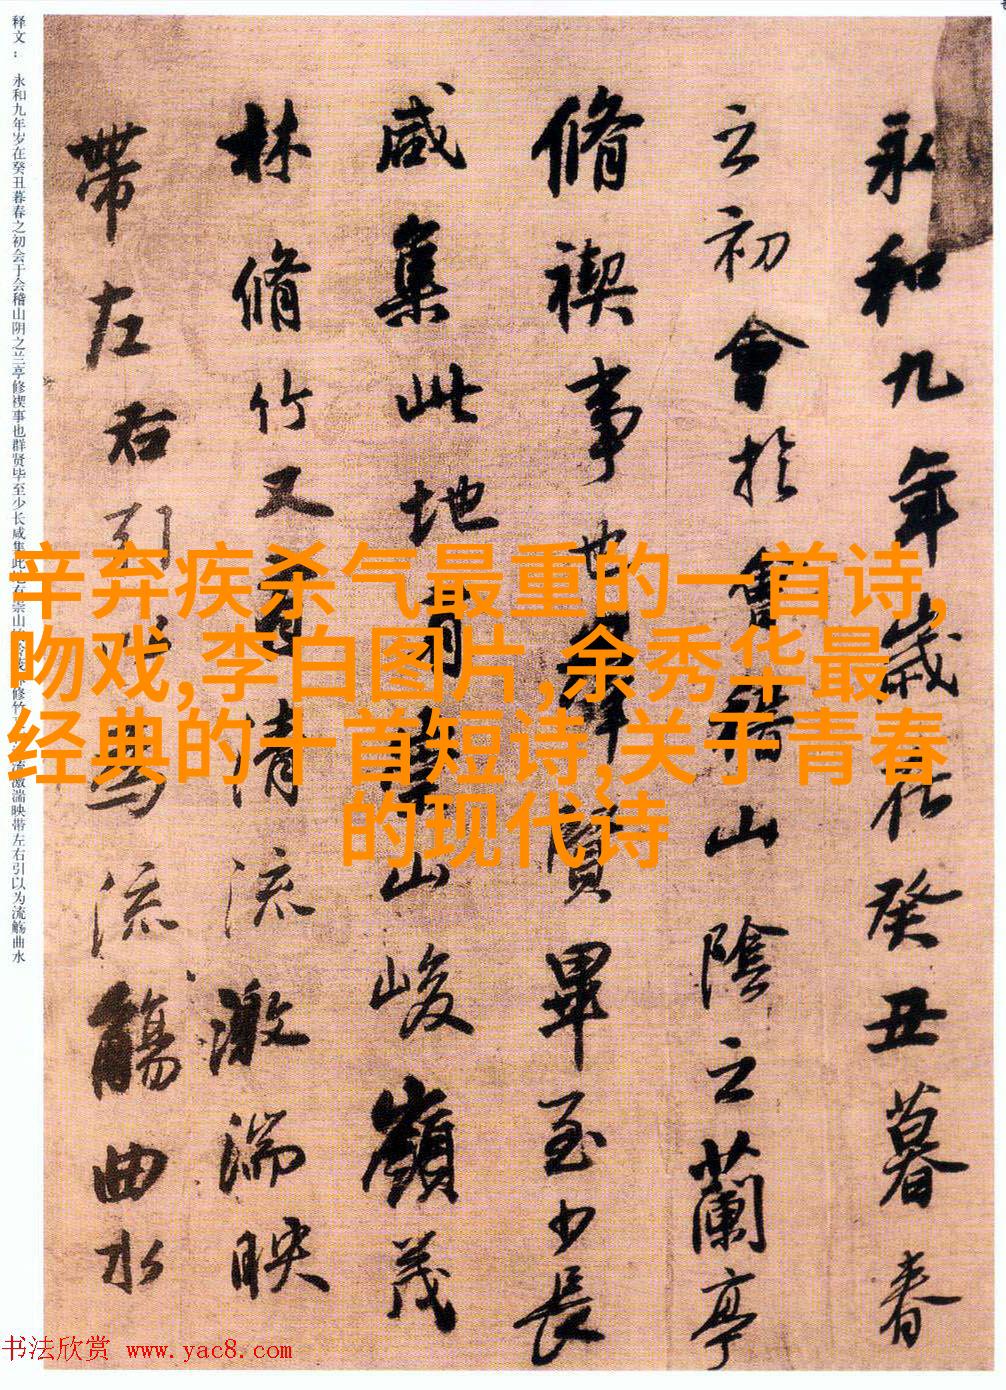 永和九年歲在癸丑暮春
之初會於會稽山陰之蘭亭
脩禊事也群賢畢至少長
咸集此地有崇山峻嶺茂
林脩竹又有清流激湍映
帶左右引以為流觴曲水
释文： 永和九年岁在癸丑暮春之初会于会稽山阴之兰亭修禊事也群贤毕至少长咸集此地右崇山峻岭茂林修竹流激湍映带左右引以为流觞曲水
辛弃疾杀气最重的一首诗,
吻戏,李白图片,余秀华最
经典的十首短诗,关于青春
的现代诗
书法欣赏 www.yac8.com